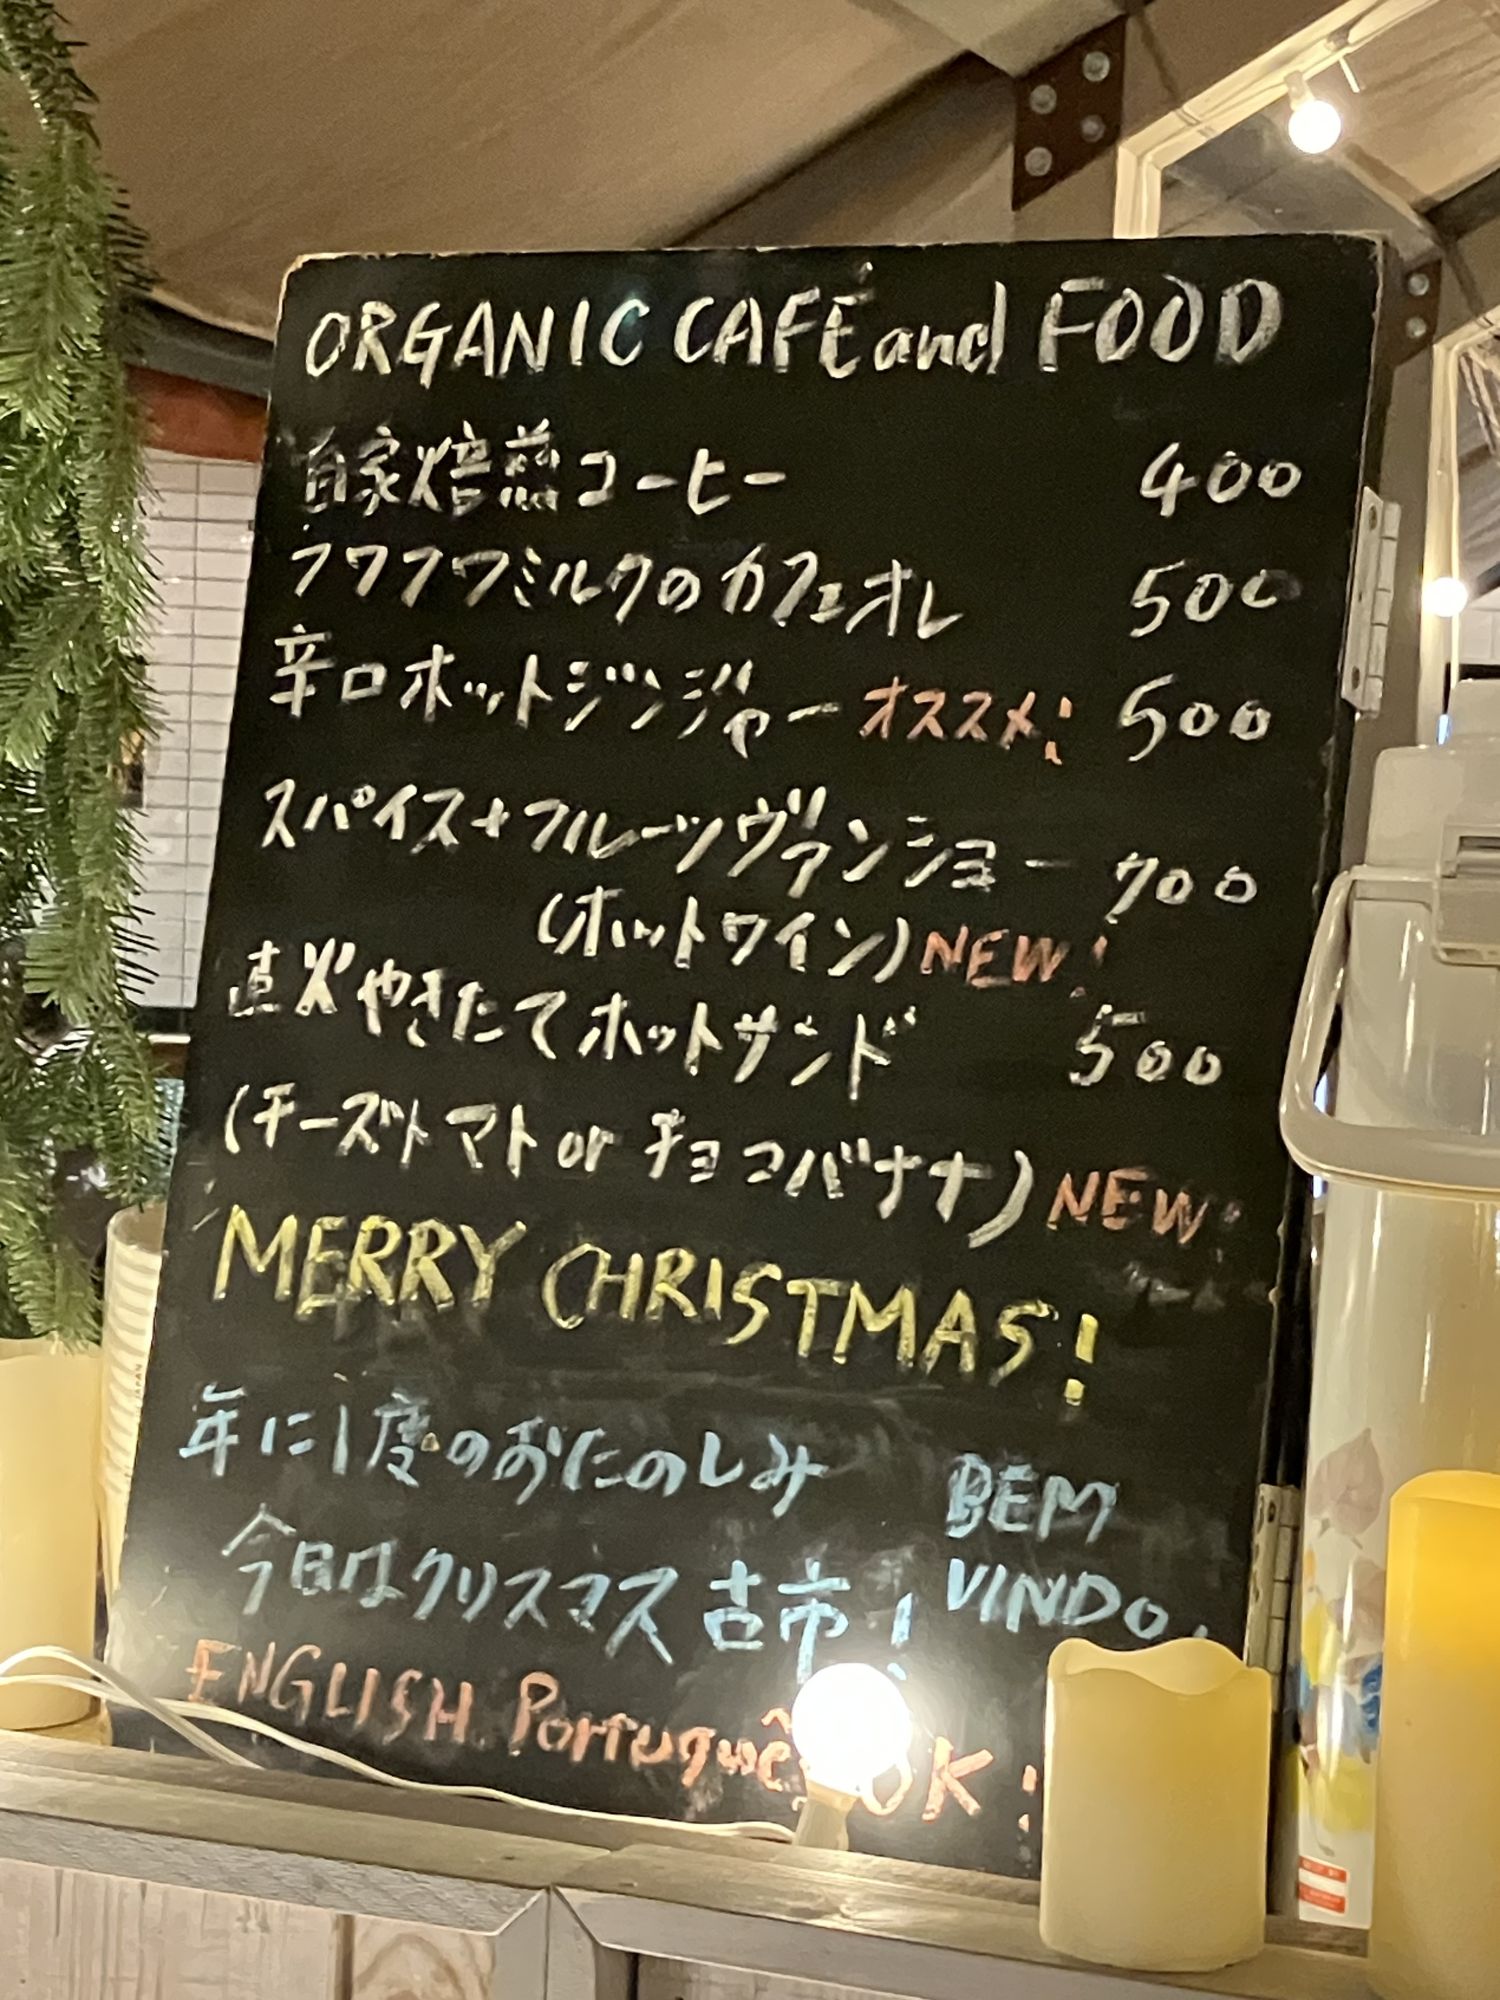 ORGANIC CAFÉ and FOOD
自家焙煎コーヒー 400
フワフワミルクのカフェオレ 500
辛口ホットジンジャー オススメ! 500
スパイス+フルーツヴァンショー 700
(ホットワイン) NEW!
直火やきたてホットサンド 500
(チーズトマト or チョコバナナ) NEW!
MERRY CHRISTMAS!
年に1度のおたのしみ
今日はクリスマス古市!
BEM
VINDO
ENGLISH. Portuguê OK!
JAPAN